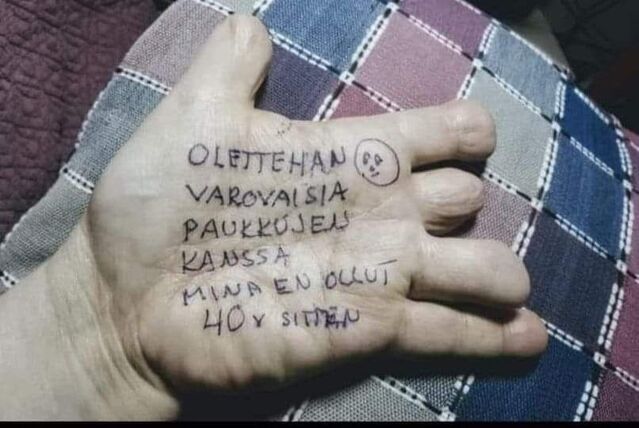 OLETTEHAN
VAROVAISIA
PAUKKUJEN
KANSSA
MINA EN OLLUT
40 v SITTEN